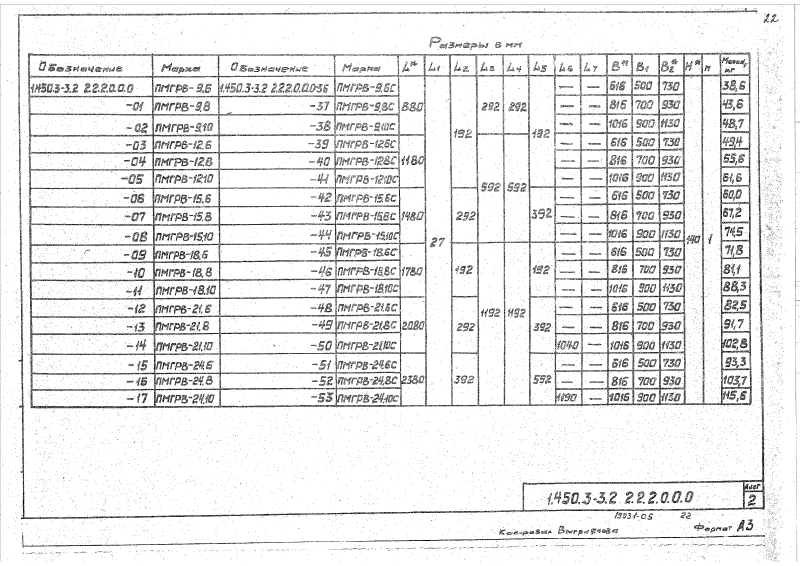 22
Размеры в мм
Обозначение Марка Обозначение Марка L* L1 L2 L3 L4 L5 L6 L7 B* B1 B2* H* n Масса, кг
1.450.3-3.2 2.2.2.0.0.0 ПМГРВ-9,6 1.450.3-3.2 2.2.2.0.0.0-36 ПМГРВ-9,6С — — 616 500 730 38,6
-01 ПМГРВ-9,8 -37 ПМГРВ-9,8С 880 292 292 — — 816 700 930 43,6
-02 ПМГРВ-9,10 -38 ПМГРВ-9,10С 192 192 — — 1016 900 1130 48,7
-03 ПМГРВ-12,6 -39 ПМГРВ-12,6С — — 616 500 730 49,4
-04 ПМГРВ-12,8 -40 ПМГРВ-12,8С 1180 — — 816 700 930 55,6
-05 ПМГРВ-12,10 -41 ПМГРВ-12,10С 592 592 — — 1016 900 1130 61,6
-06 ПМГРВ-15,6 -42 ПМГРВ-15,6С — — 616 500 730 60,0
-07 ПМГРВ-15,8 -43 ПМГРВ-15,8С 1480 292 392 — — 816 700 930 67,2
-08 ПМГРВ-15,10 -44 ПМГРВ-15,10С 27 — — 1016 900 1130 140 1 74,5
-09 ПМГРВ-18,6 -45 ПМГРВ-18,6С — — 616 500 730 71,8
-10 ПМГРВ-18,8 -46 ПМГРВ-18,8С 1780 192 192 — — 816 700 930 81,1
-11 ПМГРВ-18,10 -47 ПМГРВ-18,10С — — 1016 900 1130 88,3
-12 ПМГРВ-21,6 -48 ПМГРВ-21,6С 1192 1192 — — 616 500 730 82,5
-13 ПМГРВ-21,8 -49 ПМГРВ-21,8С 2080 292 392 — — 816 700 930 91,7
-14 ПМГРВ-21,10 -50 ПМГРВ-21,10С 1040 — 1016 900 1130 102,8
-15 ПМГРВ-24,6 -51 ПМГРВ-24,6С — — 616 500 730 93,3
-16 ПМГРВ-24,8 -52 ПМГРВ-24,8С 2380 392 592 — — 816 700 930 103,7
-17 ПМГРВ-24,10 -53 ПМГРВ-24,10С 1190 — 1016 900 1130 115,6
1.450.3-3.2 2.2.2.0.0.0
Лист
2
19031-05 22
Копировал Формат А3